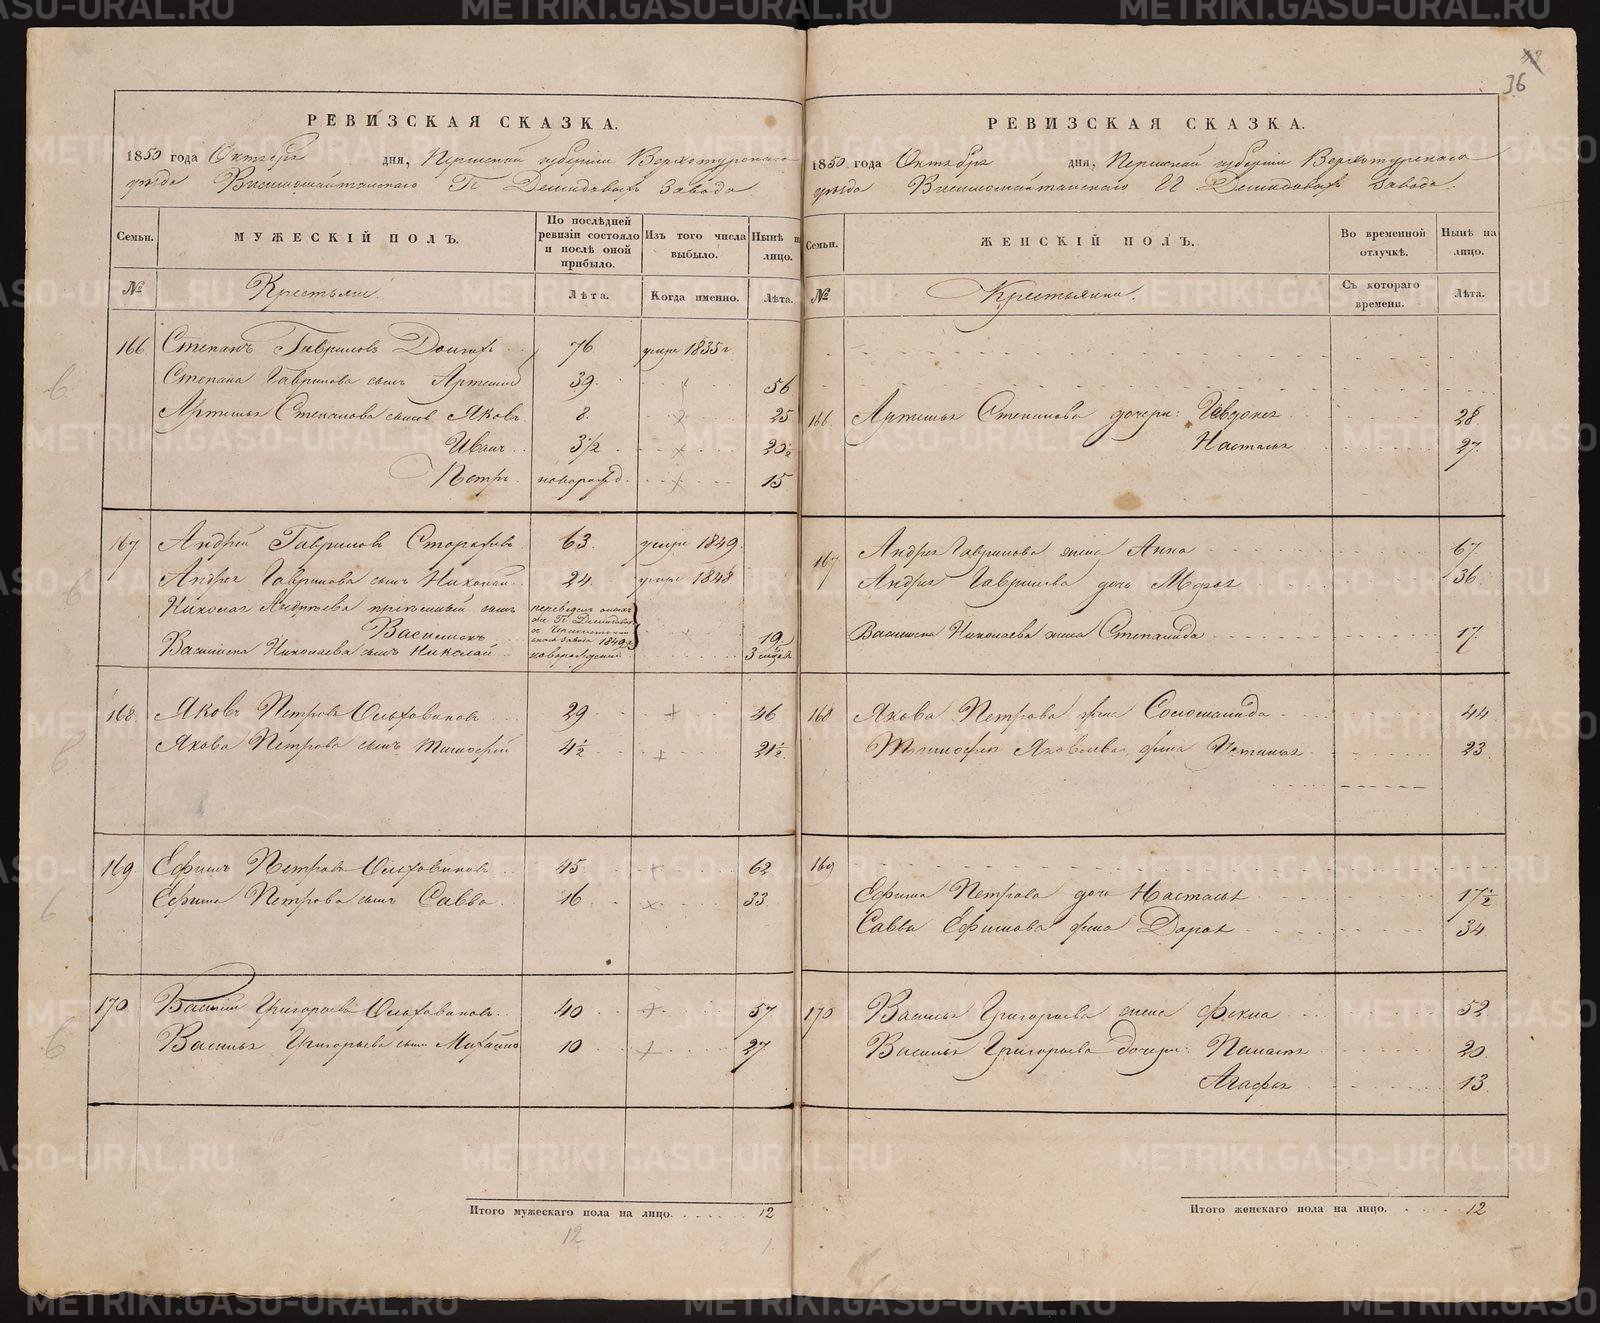 36
РЕВИЗСКАЯ СКАЗКА.
1850 года Октября дня, Пермской губернiи Верхотурскаго
уѣзда Висимошайтанскаго Гг Демидовыхъ завода
Семьи. МУЖЕСКIЙ ПОЛЪ. По послѣдней ревизiи состояло и послѣ оной прибыло. Изъ того числа выбыло. Нынѣ на лицо.
№ Крестьяне Лѣта. Когда именно. Лѣта.
166 Степанъ Гавриловъ 76 умре 1835 г
Степана Гаврилова сынъ Артемий 39 56
Артемья Степанова сыновья Яковъ 8 25
Иванъ 3 1/2 20 1/2
Петръ новорожд. 15
167 Андрей Гавриловъ 63 умре 1849
Андрея Гаврилова сынъ Николай 24 умре 1848
Николая Андреева приемный сынъ
Василей переведенъ 1849 19
Василья Николаева сынъ Николай новорожденный 3
168 Яковъ Петровъ Ольховиковъ 29 46
Якова Петрова сынъ Тимофей 4 1/2 21 1/2
169 Ефимъ Петровъ Ольховиковъ 45 62
Ефима Петрова сынъ Савва 16 33
170 Василий Григорьевъ Ольховиковъ 40 57
Василья Григорьева сынъ Михайло 10 27
Итого мужескаго пола на лицо. 12
12
РЕВИЗСКАЯ СКАЗКА.
1850 года Октября дня, Пермской губернiи Верхотурскаго
уѣзда Висимошайтанскаго Гг Демидовыхъ завода.
Семьи. ЖЕНСКIЙ ПОЛЪ. Во временной отлучкѣ. Нынѣ на лицо.
№ Крестьянки. Съ котораго времени. Лѣта.
166 Артемья Степанова дочери: Евдокея 28
Настасья 27
167 Андрея Гаврилова жена Анна 67
Андрея Гаврилова дочь Марья 36
Василья Николаева жена Степанида 17
168 Якова Петрова жена Соломанида 44
Тимофея Яковлева жена Устинья 23
169
Ефима Петрова дочь Настасья 17 1/2
Саввы Ефимова жена Дарья 34
170 Василья Григорьева жена Фекла 52
Василья Григорьева дочери: Палагея 20
Агафья 13
Итого женскаго пола на лицо. 12
METRIKI.GASO-URAL.RU